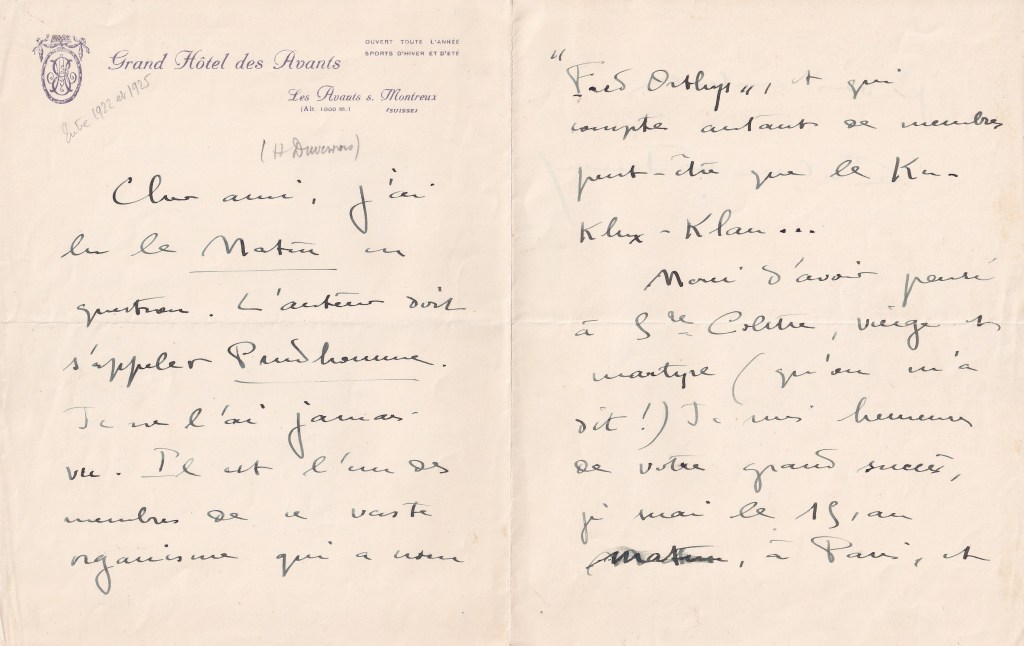 Grand Hôtel des Avants
OUVERT TOUTE L'ANNÉE
SPORTS D'HIVER ET D'ÉTÉ
Les Avants s. Montreux
(Alt. 1000 m.) (SUISSE)
Entre 1922 et 1925
(H Duvernois)
Cher ami, j'ai
lu le Matin en
question. L'auteur doit
s'appeler Prudhomme.
Je ne l'ai jamais
vu. Il est l'un des
membres de ce vaste
organisme qui a nom
"Fred Orthys", et qui
compte autant de membres
peut-être que le Ku-
Klux-Klan...
Merci d'avoir pensé
à Ste Colette, vierge et
martyre (qu'on m'a
dit!) Je suis heureuse
de votre grand succès,
je serai le 15, au
matin, à Paris, et